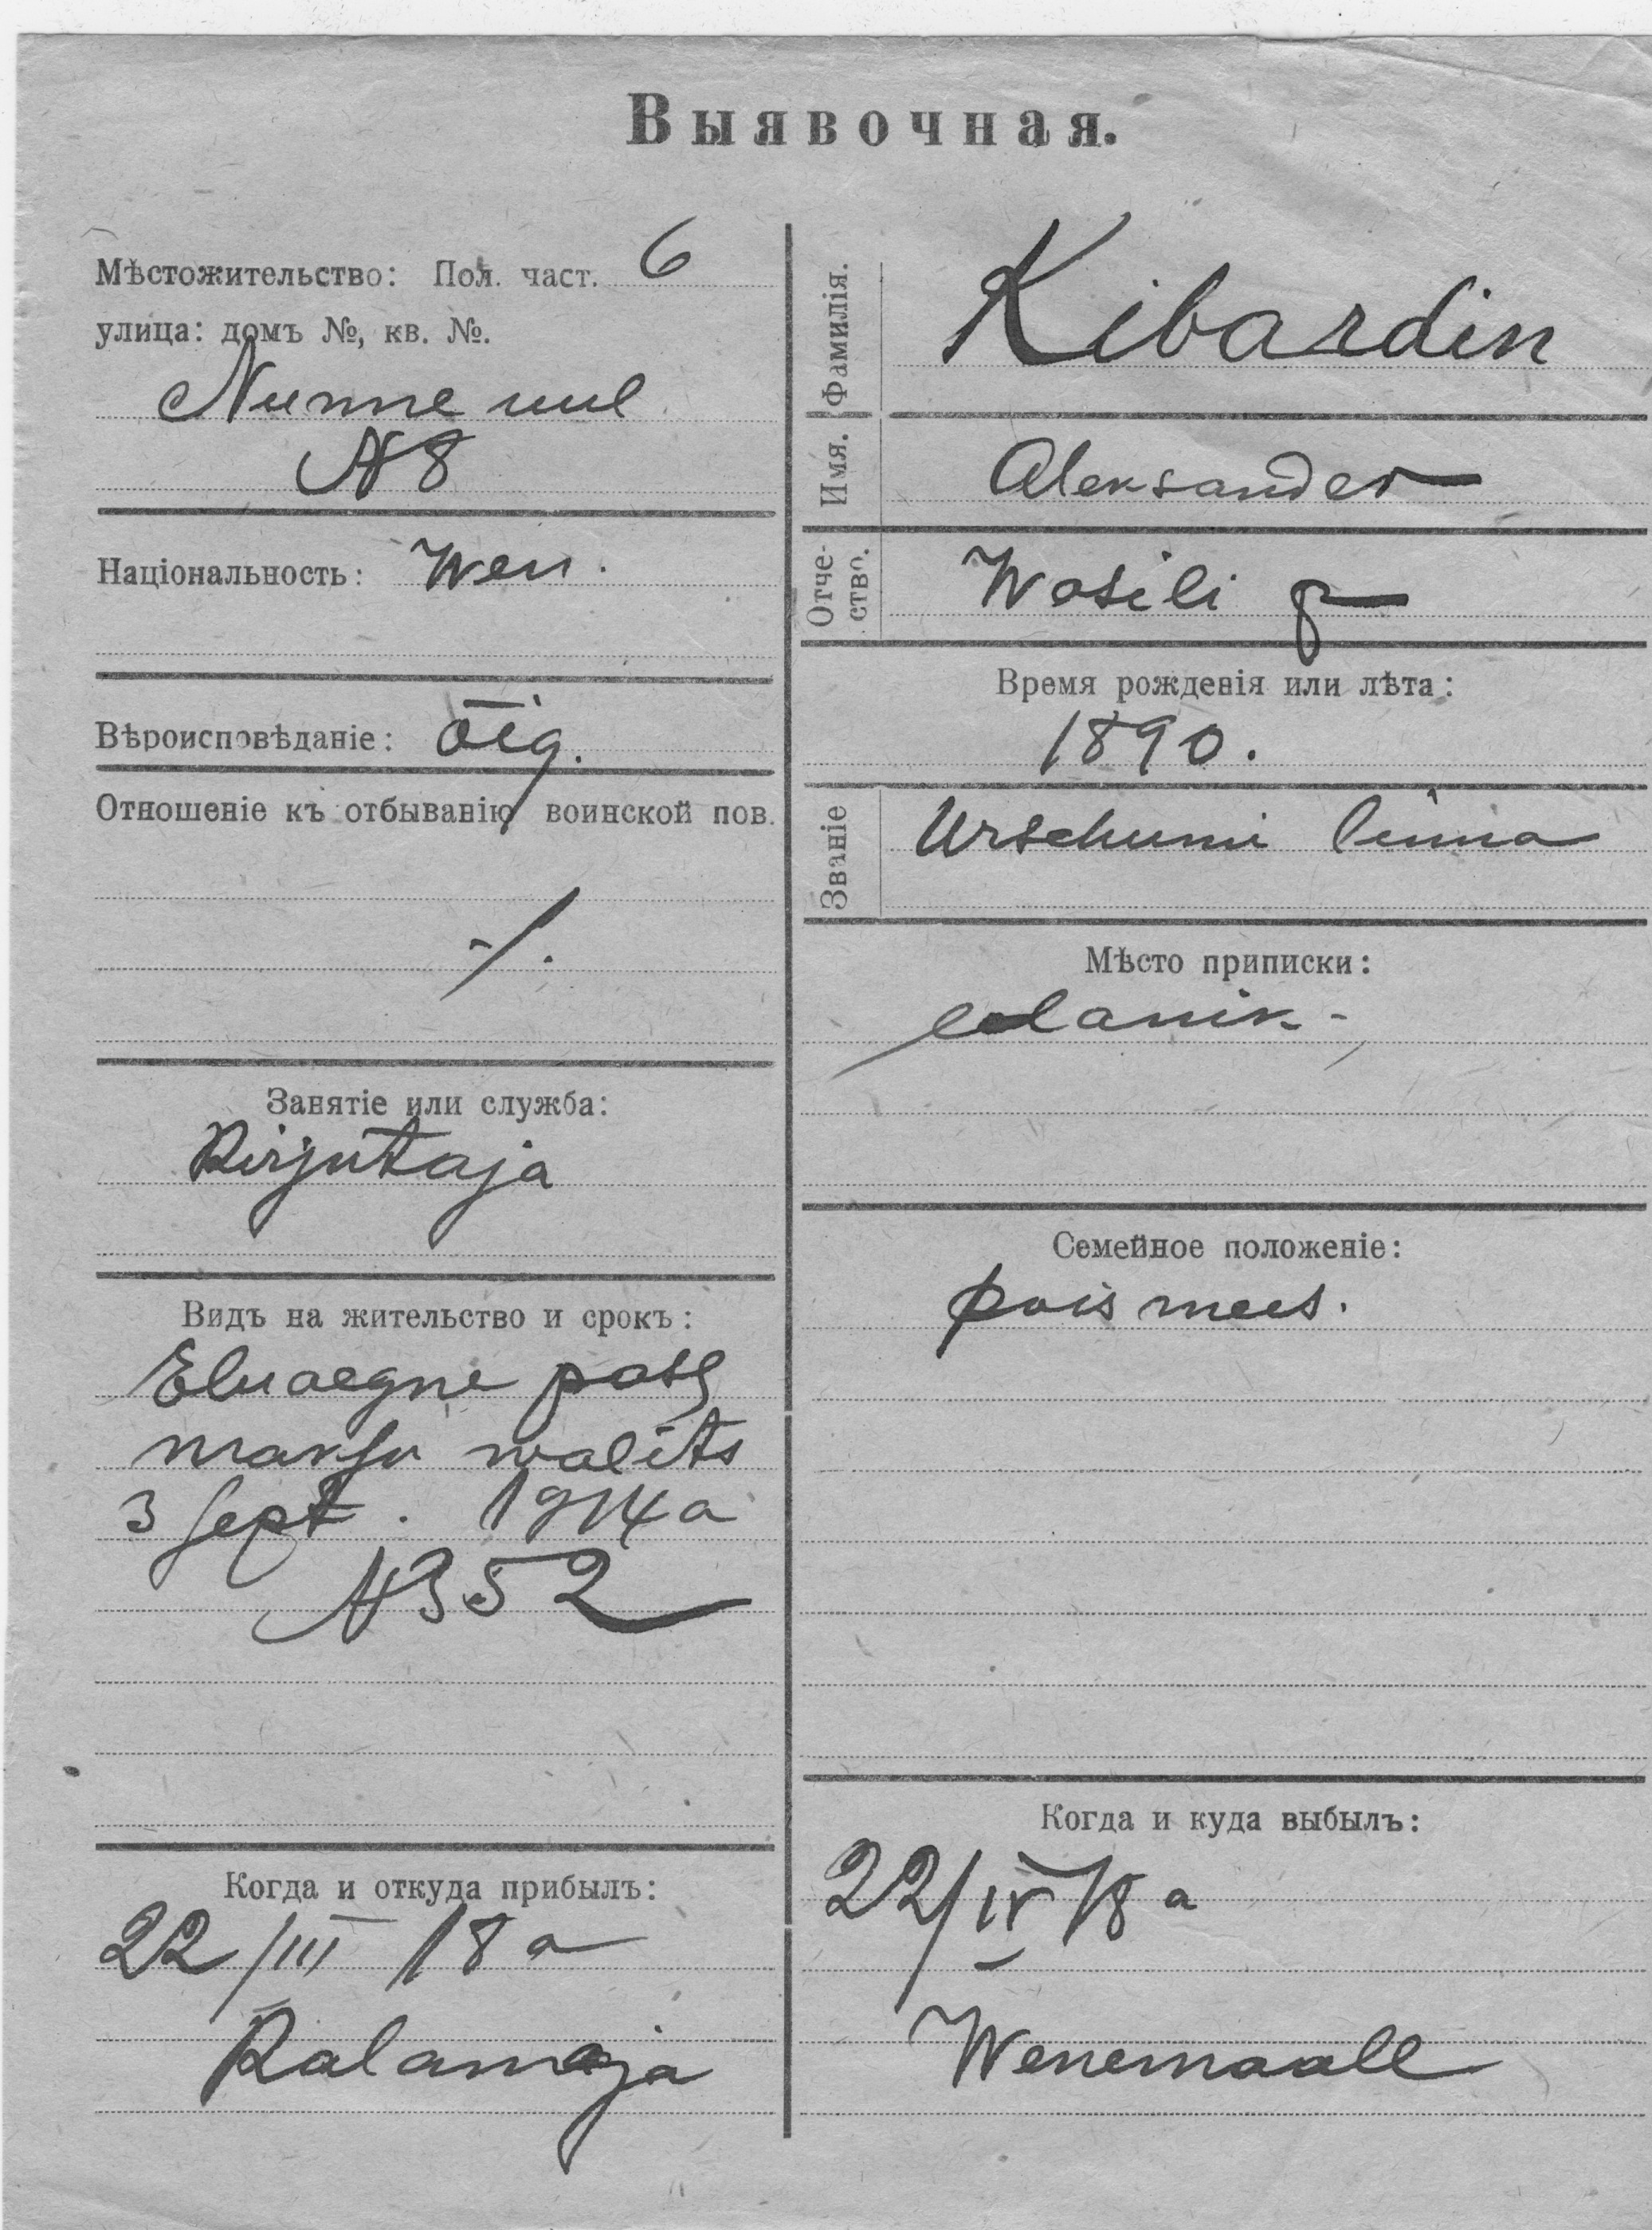 Выявочная.
Мѣстожительство: Пол. част. 6
улица: домъ №, кв. №.
Nunne uul
N 8
Національность: Wen.
Вѣроисповѣданіе: õig.
Отношеніе къ отбыванію воинской пов.
-/.
Занятіе или служба:
Kirjutaja
Видъ на жительство и срокъ:
Eluaegne pass
walits
3 sept. 1914 a
N 352
Когда и откуда прибылъ:
22/III 18 a
Kalamaja
Фамилія. Kibardin
Имя. Aleksander
Отче-
ство. Wasili p
Время рожденія или лѣта:
1890.
Званіе Urschumi linna
Мѣсто приписки:
elanik-
Семейное положеніе:
poismees.
Когда и куда выбылъ:
22/IV 18 a
Wenemaale